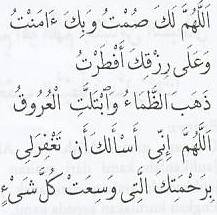 اَللّٰهُمَّ لَكَ صُمْتُ وَبِكَ ءَامَنْتُ
وَعَلَى رِزْقِكَ أَفْطَرْتُ
ذَهَبَ الظَّمَاءُ وَٱبْتَلَّتِ الْعُرُوقُ
اَللّٰهُمَّ إِنِّى أَسْأَلُكَ أَن تَغْفِرَلِى
بِرَحْمَتِكَ الَّتِى وَسِعَتْ كُلَّ شَىْءٍ